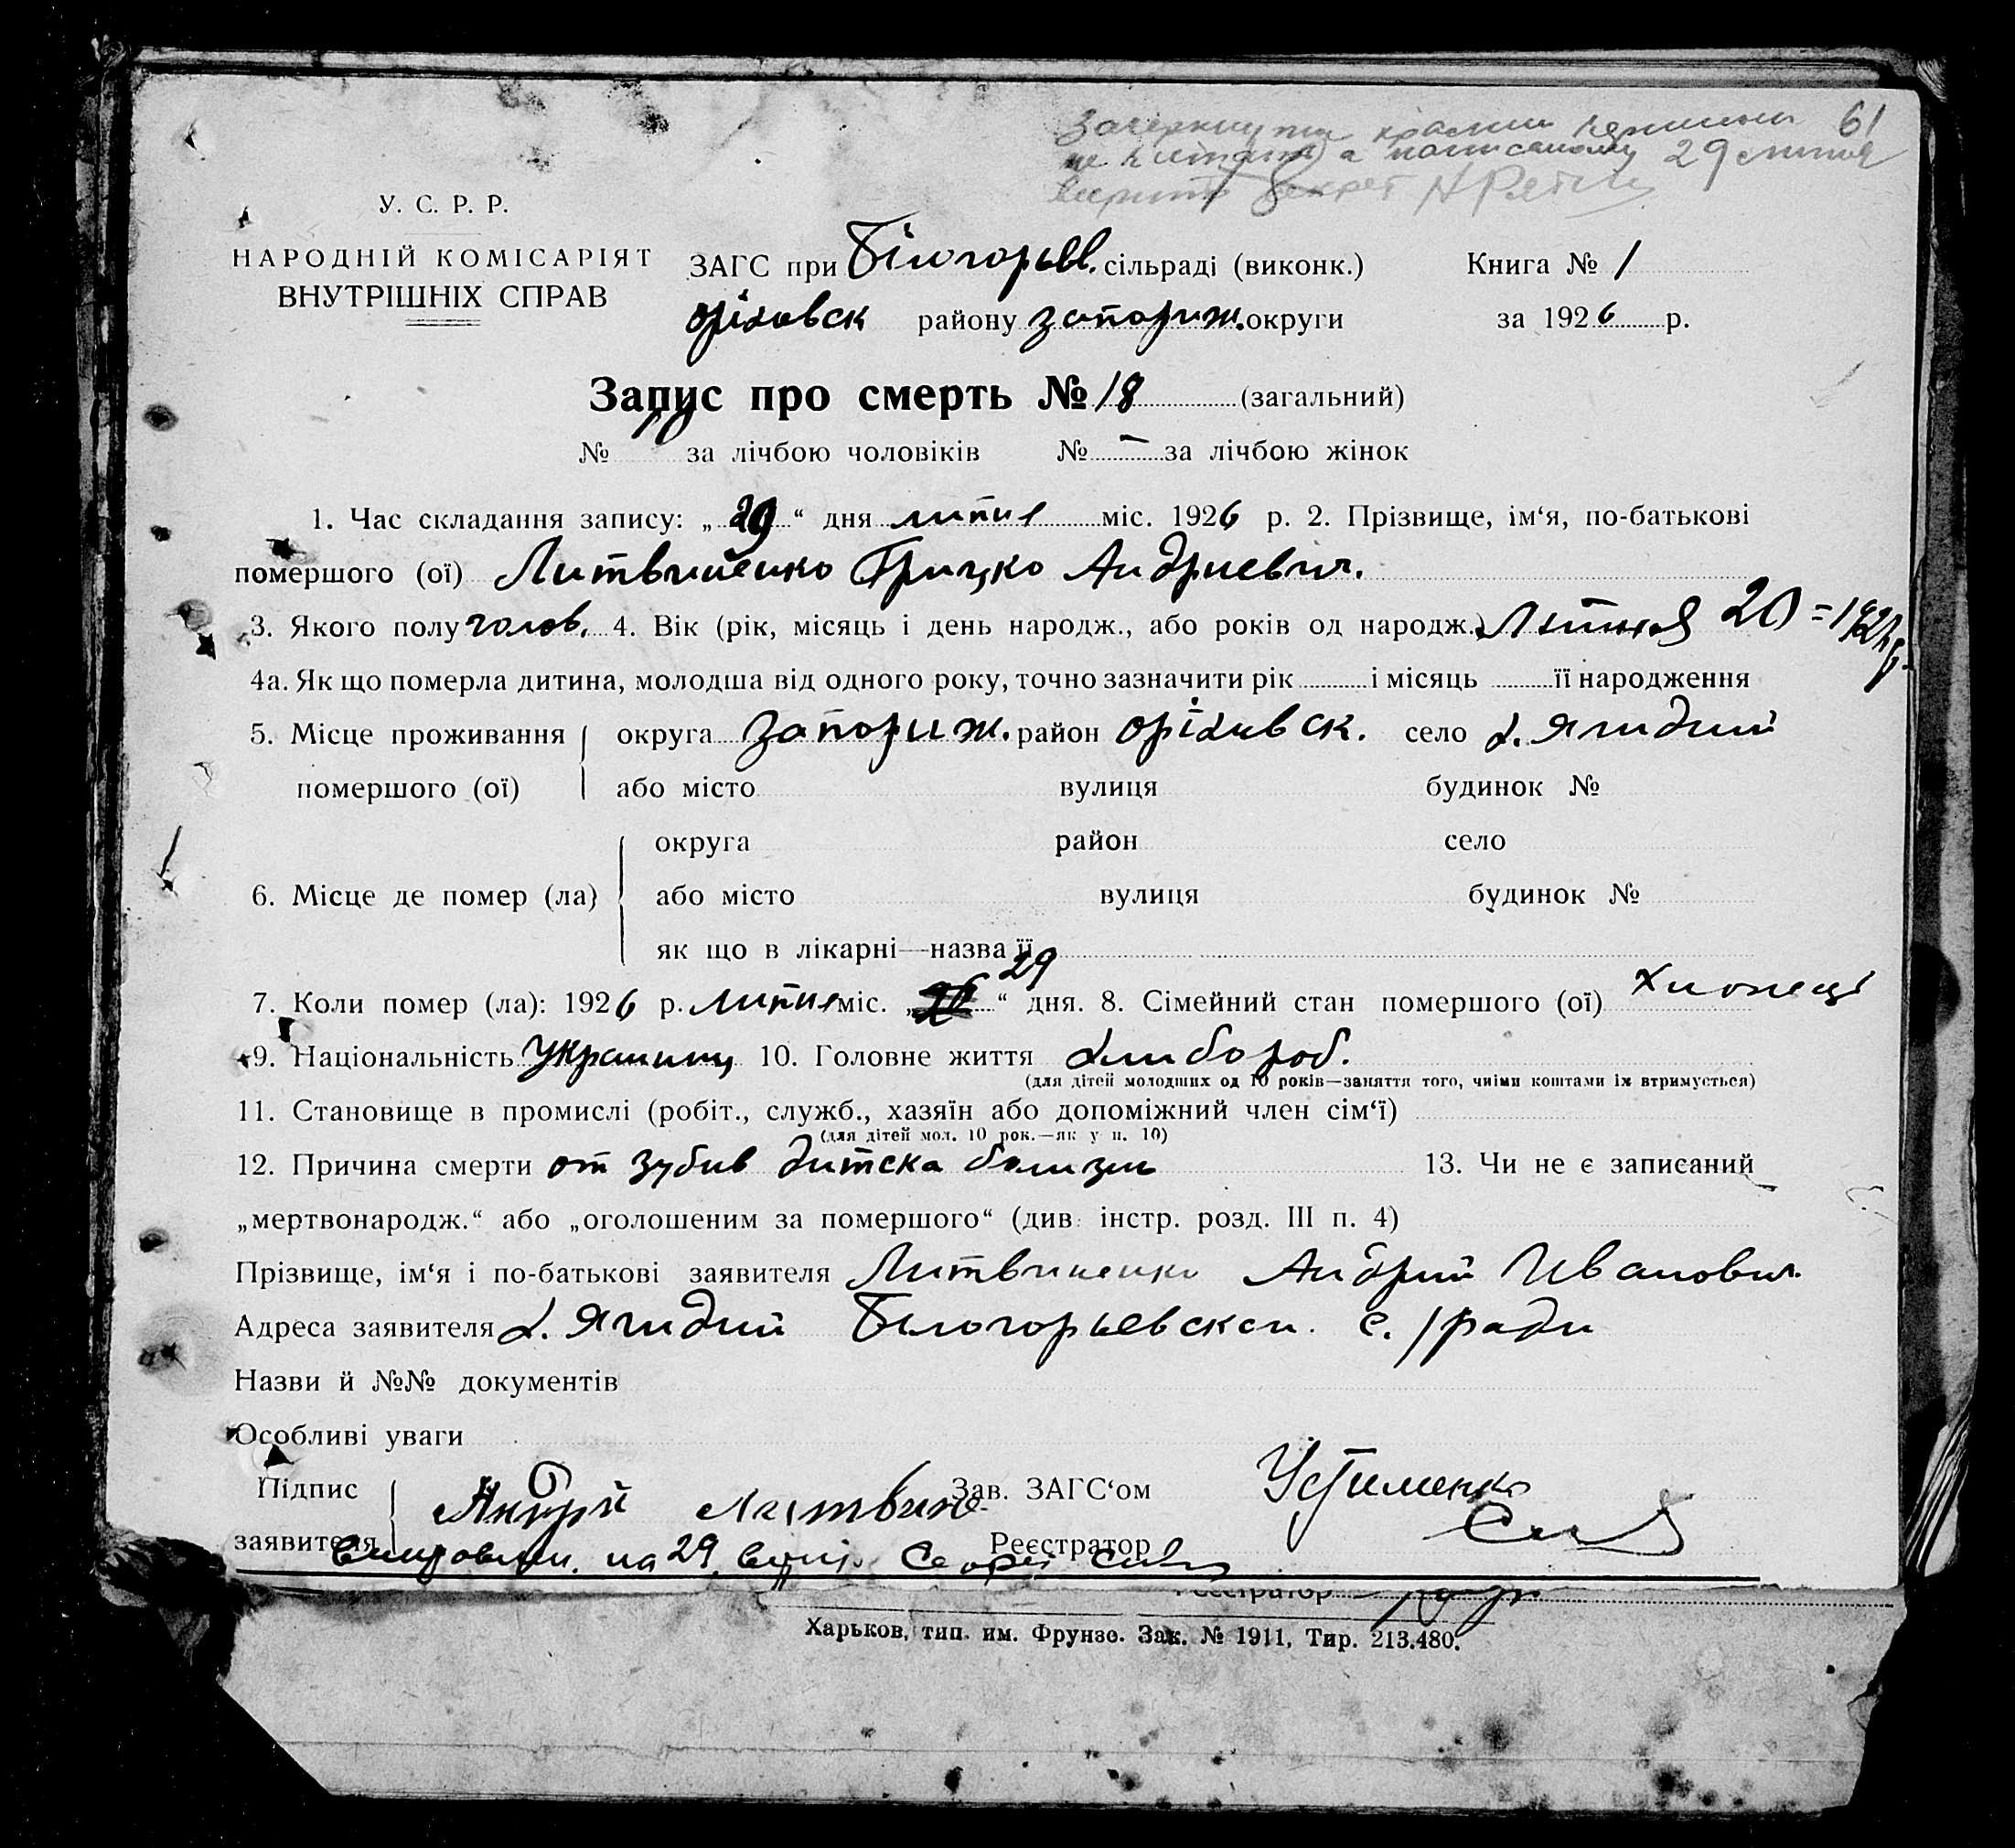 61
29 липня
У. С. Р. Р.
НАРОДНІЙ КОМІСАРІЯТ
ВНУТРІШНІХ СПРАВ
ЗАГС при Білогорьев. сільраді (виконк.) Книга № 1
оріховск району запориж. округи за 1926 р.
Запис про смерть № 18 (загальний)
№ 10 за лічбою чоловіків № – за лічбою жінок
1. Час складання запису: „29“ дня липня міс. 1926 р. 2. Прізвище, ім‘я, по-батькові
помершого (ої) Литвиненко Грицко Андриевич.
3. Якого полу чолов. 4. Вік (рік, місяць і день народж., або років од народж.) Липня 20 =
4а. Як що померла дитина, молодша від одного року, точно зазначити рік і місяць її народження
5. Місце проживання округа Запориж. район оріховск. село х. Ягидний
помершого (ої) або місто вулиця будинок №
округа район село
6. Місце де помер (ла) або місто вулиця будинок №
як що в лікарні—назва її
7. Коли помер (ла): 1926 р. липня міс. „ “ 29 дня. 8. Сімейний стан помершого (ої) хлопець
9. Національність Украинец 10. Головне життя хлибороб.
(для дітей молодших од 10 років—заняття того, чиїми коштами їх втримується)
11. Становище в промислі (робіт., служб., хазяїн або допоміжний член сім‘ї)
(для дітей мол. 10 рок.—як у п. 10)
12. Причина смерти от зубив дитска болизнь 13. Чи не є записаний
„мертвонародж.“ або „оголошеним за помершого“ (див. інстр. розд. III п. 4)
Прізвище, ім‘я і по-батькові заявителя Литвиненко Андрий Иванович.
Адреса заявителя х. Ягидний Білогорьевской с./ради
Назви й №№ документів
Особливі уваги
Підпис Андрій Литвине- Зав. ЗАГС‘ом Устименко
заявителя Реєстратор
на 29
Реєстратор
Харьков, тип. им. Фрунзе. Зак. № 1911, Тир. 213.480.